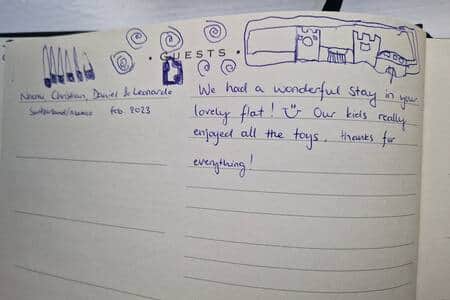 GUESTS
Christian, Daniel & Leonardo
Switzerland/ Feb. 2023
We had a wonderful stay in your
lovely flat! Our kids really
enjoyed all the toys. Thanks for
everything!